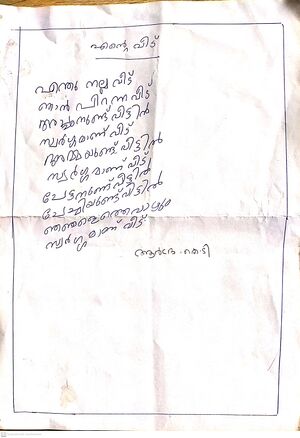 എന്റെ വീട്
എന്തു നല്ല വീട്
ഞാൻ പിറന്ന വീട്
അച്ഛനുണ്ട് വീട്ടിൽ
സ്വർഗ്ഗമാണ് വീട്
അമ്മയുണ്ട് വീട്ടിൽ
സ്വർഗ്ഗമാണ് വീട്
ചേട്ടനുണ്ട് വീട്ടിൽ
ചേച്ചിയുണ്ട് വീട്ടിൽ
സ്വർഗ്ഗമാണ് വീട്
കെ.ടി